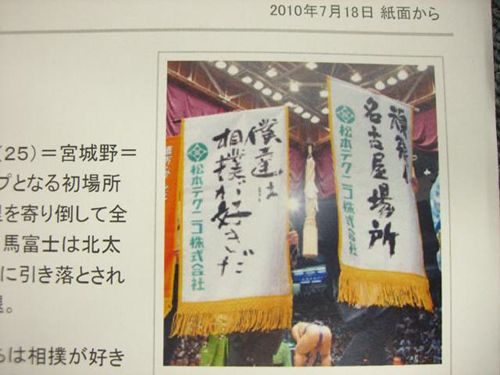 2010年7月18日 紙面から
(25)=宮城野=
プとなる初場所
を寄り倒して全
馬富士は北太
に引き落とされ
。
らは相撲が好き
頑張れ
名古屋場所
松本テクニコ株式会社
僕達は
相撲が好きだ
松本テクニコ株式会社